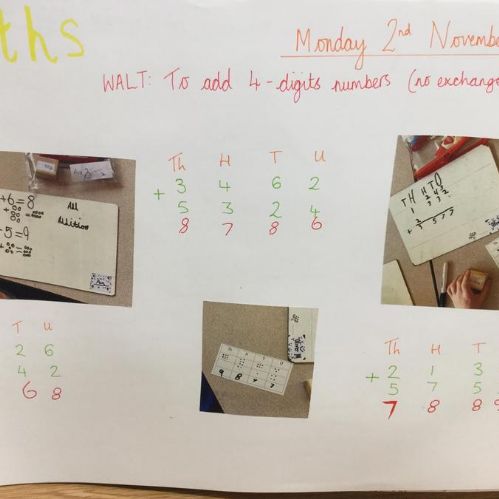 ths
Monday 2nd November
WALT: To add 4-digits numbers (no exchange
Th H T U
+ 3 4 6 2
5 3 2 4
8 7 8 6
+6=8
5=9
All
Addition
TH H T O
T U
2 6
4 2
6 8
9 8 7 7
Th H T
+ 2 1 3
5 7 5
7 8 8 9